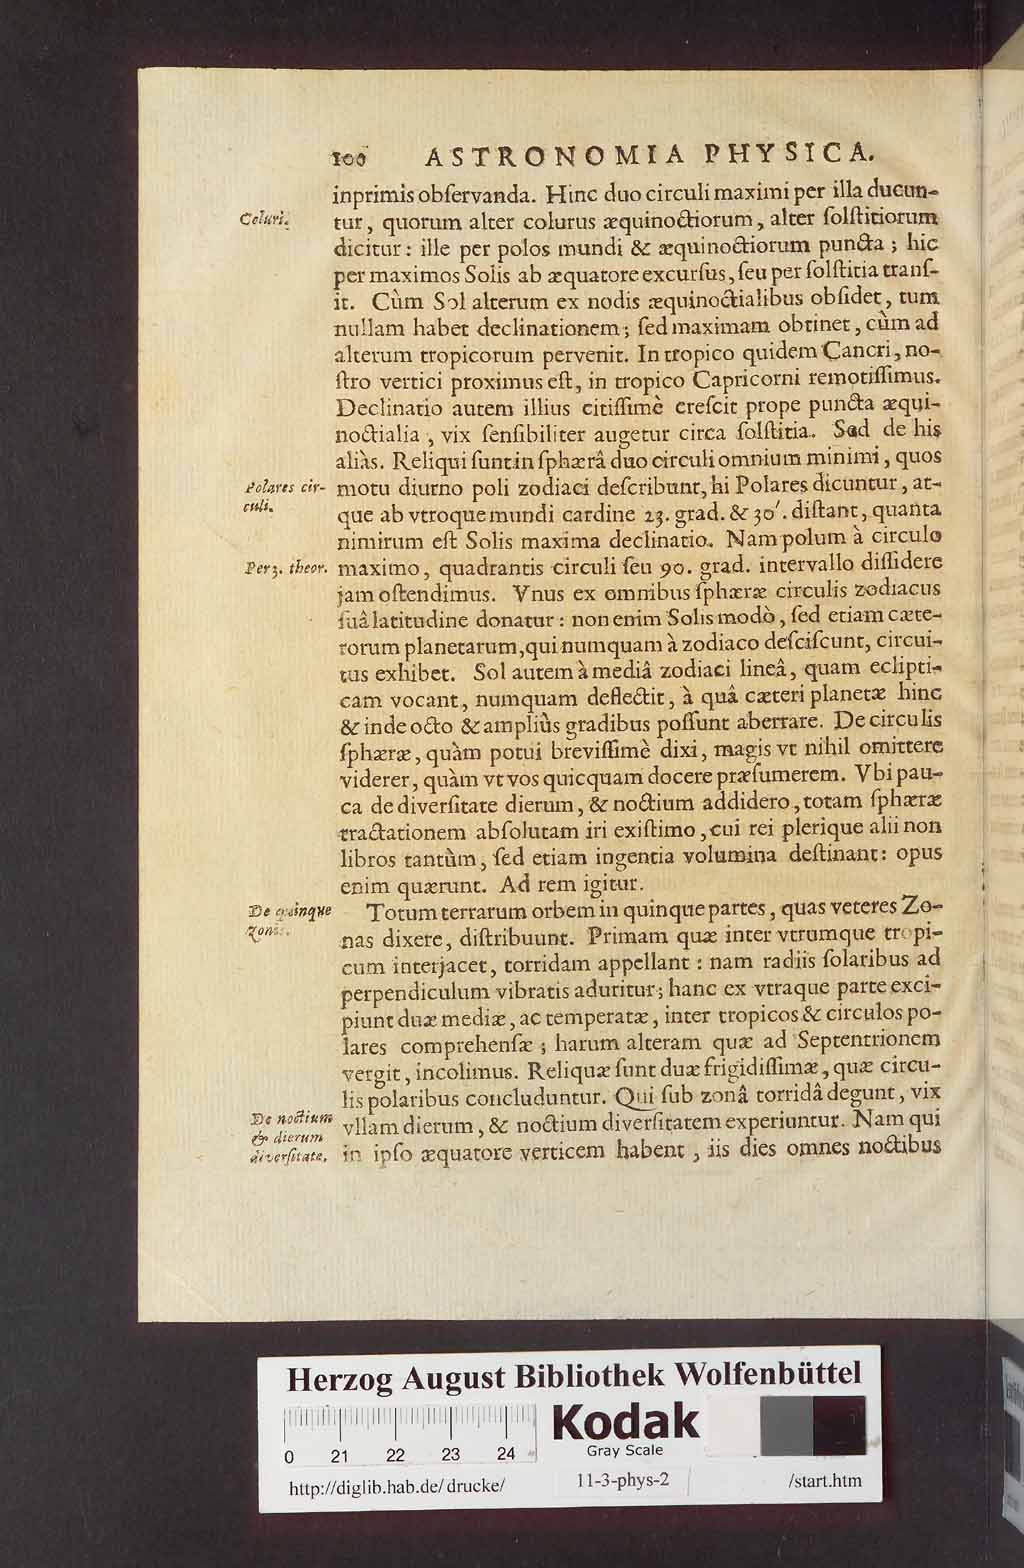 100 ASTRONOMIA PHYSICA.
inprimis obſervanda. Hinc duo circuli maximi per illa ducun-
Coluri.
tur, quorum alter colurus æquinoctiorum, alter ſolſtitiorum
dicitur: ille per polos mundi & æquinoctiorum puncta; hic
per maximos Solis ab æquatore excurſus, ſeu per ſolſtitia tranſ-
it. Cùm Sol alterum ex nodis æquinoctialibus obſidet, tum
nullam habet declinationem; ſed maximam obtinet, cùm ad
alterum tropicorum pervenit. In tropico quidem Cancri, no-
ſtro vertici proximus eſt, in tropico Capricorni remotiſſimus.
Declinatio autem illius citiſſimè creſcit prope puncta æqui-
noctialia, vix ſenſibiliter augetur circa ſolſtitia. Sed de his
aliàs. Reliqui ſunt in ſphærâ duo circuli omnium minimi, quos
Polares cir-
culi.
motu diurno poli zodiaci deſcribunt, hi Polares dicuntur, at-
que ab vtroque mundi cardine 23. grad. & 30′. diſtant, quanta
nimirum eſt Solis maxima declinatio. Nam polum à circulo
Per 3. theor.
maximo, quadrantis circuli ſeu 90. grad. intervallo diſſidere
jam oſtendimus. Vnus ex omnibus ſphæræ circulis zodiacus
ſuâ latitudine donatur: non enim Solis modò, ſed etiam cæte-
rorum planetarum, qui numquam à zodiaco deſciſcunt, circui-
tus exhibet. Sol autem à mediâ zodiaci lineâ, quam eclipti-
cam vocant, numquam deflectit, à quâ cæteri planetæ hinc
& inde octo & ampliùs gradibus poſſunt aberrare. De circulis
ſphæræ, quàm potui breviſſimè dixi, magis vt nihil omittere
viderer, quàm vt vos quicquam docere præſumerem. Vbi pau-
ca de diverſitate dierum, & noctium addidero, totam ſphæræ
tractationem abſolutam iri exiſtimo, cui rei plerique alii non
libros tantùm, ſed etiam ingentia volumina deſtinant: opus
enim quærunt. Ad rem igitur.
De quinque
Zonis.
Totum terrarum orbem in quinque partes, quas veteres Zo-
nas dixere, diſtribuunt. Primam quæ inter vtrumque tropi-
cum interjacet, torridam appellant: nam radiis ſolaribus ad
perpendiculum vibratis aduritur; hanc ex vtraque parte exci-
piunt duæ mediæ, ac temperatæ, inter tropicos & circulos po-
lares comprehenſæ; harum alteram quæ ad Septentrionem
vergit, incolimus. Reliquæ ſunt duæ frigidiſſimæ, quæ circu-
lis polaribus concluduntur. Qui ſub zonâ torridâ degunt, vix
De noctium
& dierum
diverſitate.
vllam dierum, & noctium diverſitatem experiuntur. Nam qui
in ipſo æquatore verticem habent, iis dies omnes noctibus
Herzog August Bibliothek Wolfenbüttel
Kodak
Gray Scale
0 21 22 23 24
http://diglib.hab.de/drucke/ 11-3-phys-2 /start.htm